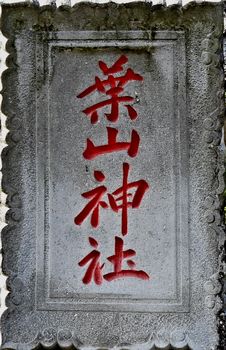 葉山神社